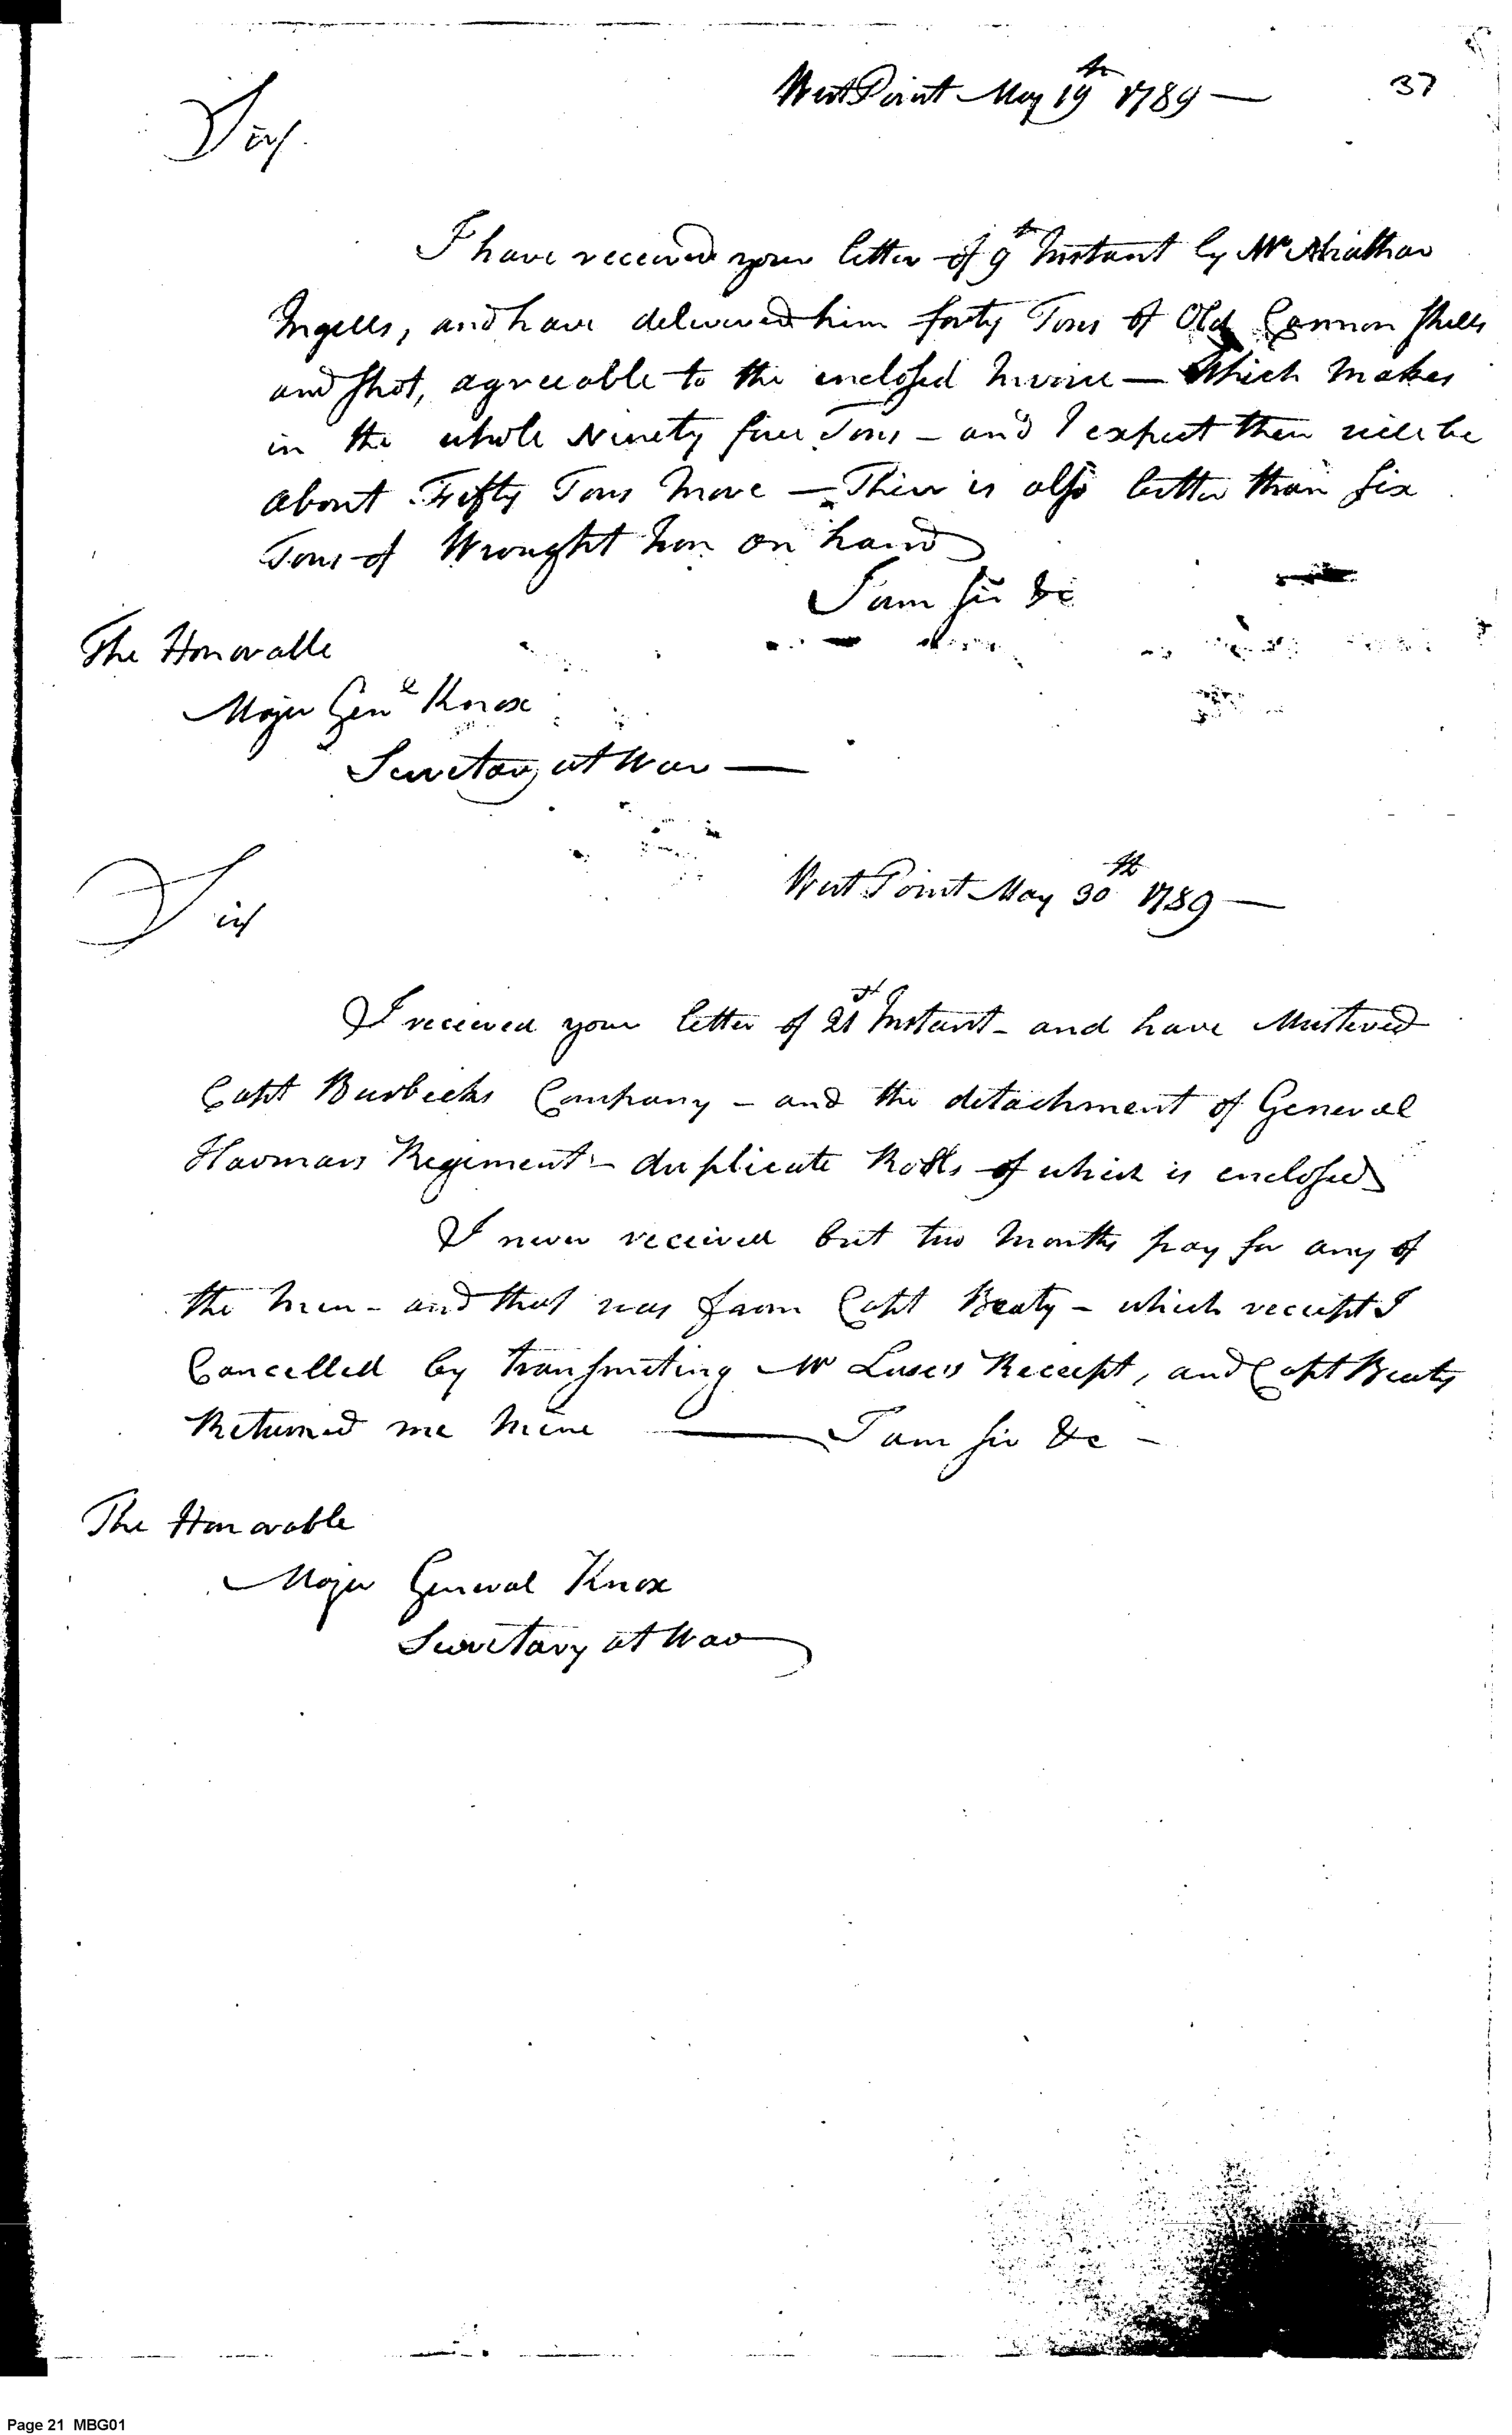 37
West Point May 19th 1789 —
Sir
I have received your letter of 9th Instant by Mr
Ingells, and have delivered him forty Tons of Old Cannon Shells
and Shot, agreeable to the enclosed Invoice — Which makes
in the whole Ninety five Tons – and I expect there will be
about Fifty Tons More — There is also better than six
Tons of Wrought Iron on hand
I am Sir &c
The Honorable
Major Genl Knox
Secretary at War —
West Point May 30th 1789 —
Sir
I received your letter of 21st Instant – and have Mustered
Capt Burbecks Company – and the detachment of General
Harmars Regiment – duplicate Rolls of which is enclosed
I never received but two Months pay for any of
the Men – and that was from Capt Beaty – which receipt I
Cancelled by transmiting Mr Luses Receipt, and Capt Beaty
Returned me Mine — I am Sir &c –
The Honorable
Major General Knox
Secretary at War
Page 21 MBG01